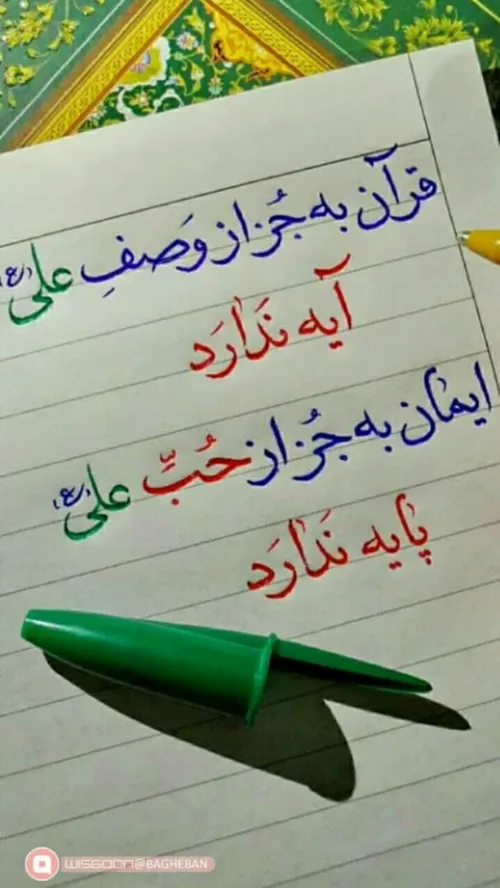 قرآن به جُز از وَصفِ علی (ع)
آیه نَدارَد
ایمان به جُز از حُبِّ علی (ع)
پایه نَدارَد
WISGOON@BAGHEBAN